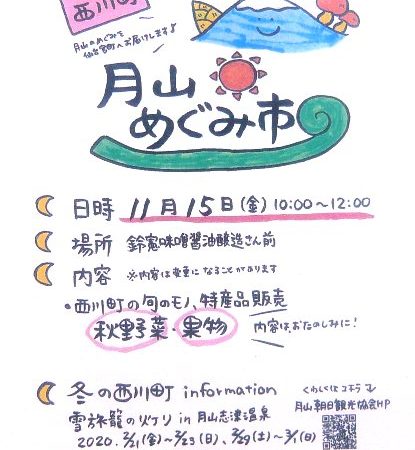 西川町
月山のめぐみを
仙台宮町へお届けします♪
月山
めぐみ市
日時 11月15日(金) 10:00~12:00
場所 鈴憲味噌醤油醸造さん前
内容 ※内容は変更になることがあります
・西川町の旬のモノ、特産品販売
秋野菜・果物 内容はおたのしみに!
冬の西川町 information
くわしくはコチラ
雪旅籠の灯り in 月山志津温泉
月山朝日観光協会HP
2020. 2/21(金)~2/23(日)、2/29(土)~3/1(日)